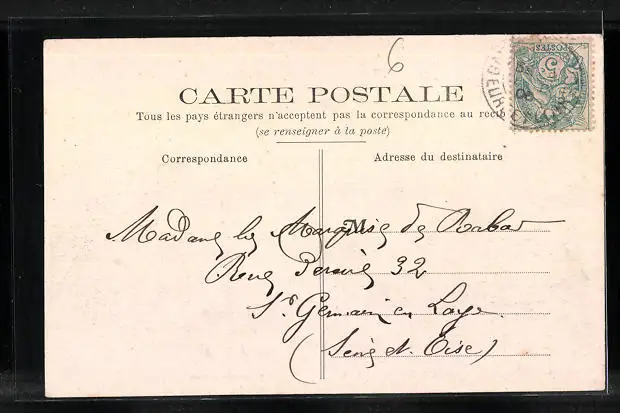 6
CARTE POSTALE
Tous les pays étrangers n'acceptent pas la correspondance au recto
(se renseigner à la poste)
Correspondance
Adresse du destinataire
M
Madame la Marquise de
Rue 32
St Germain en Laye
(Seine et Oise)
POSTES
5